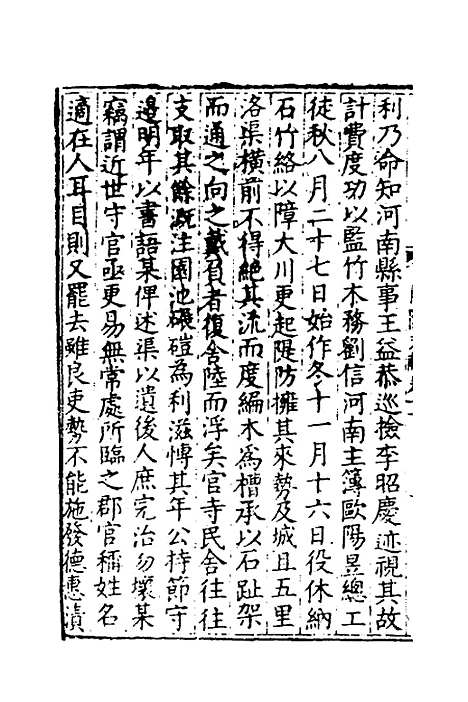 利乃命知河南縣事王益恭巡檢李昭慶迹視其故
計費度功以監竹木務劉信河南主簿歐陽昱總工
徒秋八月二十七日始作冬十一月十六日役休納
石竹絡以障大川更起隄防擁其來勢及城且五里
洛渠橫前不得絶其流而度編木爲槽承以石趾架
而通之向之戴負者復舍陸而浮矣官寺民舍往往
支取其餘溉注園池碾磑為利滋愽其年公持節守
邊明年以書語某俾述渠以遺後人庶完治勿壞某
竊謂近世守官亟更易無常處所臨之郡官稱姓名
適在人耳目則又罷去雖良吏勢不能施發德惠漬